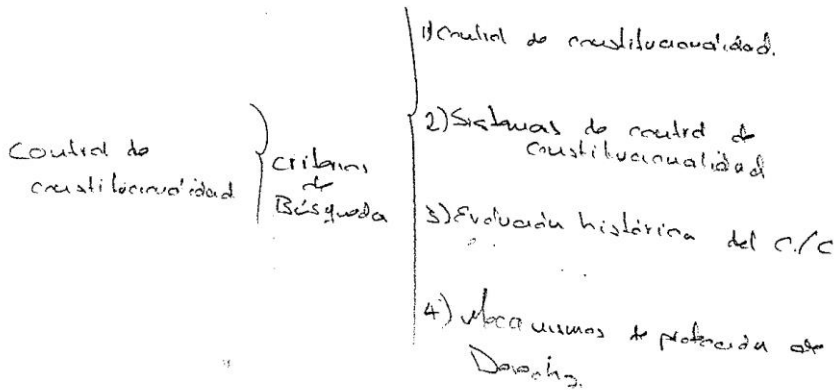 Control de
constitucionalidad
Criterios
de
Búsqueda
1) Control de constitucionalidad.
2) Sistemas de control de
constitucionalidad
3) Evolución histórica del C./C
4) Mecanismos de protección de
Derechos.